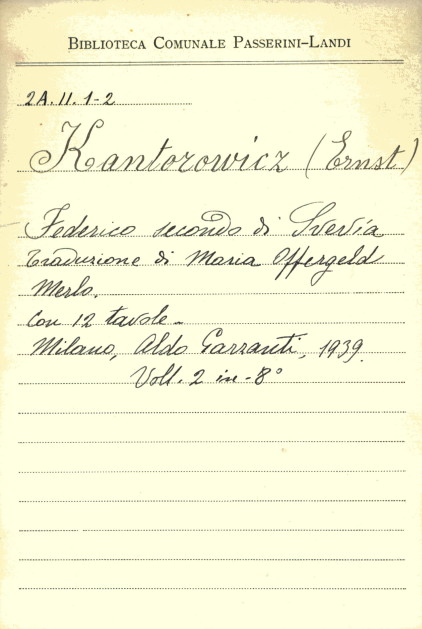 BIBLIOTECA COMUNALE PASSERINI-LANDI
2A.II.1-2
Kantorowicz (Ernst)
Federico secondo di Svevia
Traduzione di Maria Offergeld
Merlo.
Con 12 tavole -
Milano, Aldo Garzanti, 1939.
Voll. 2 in-8°